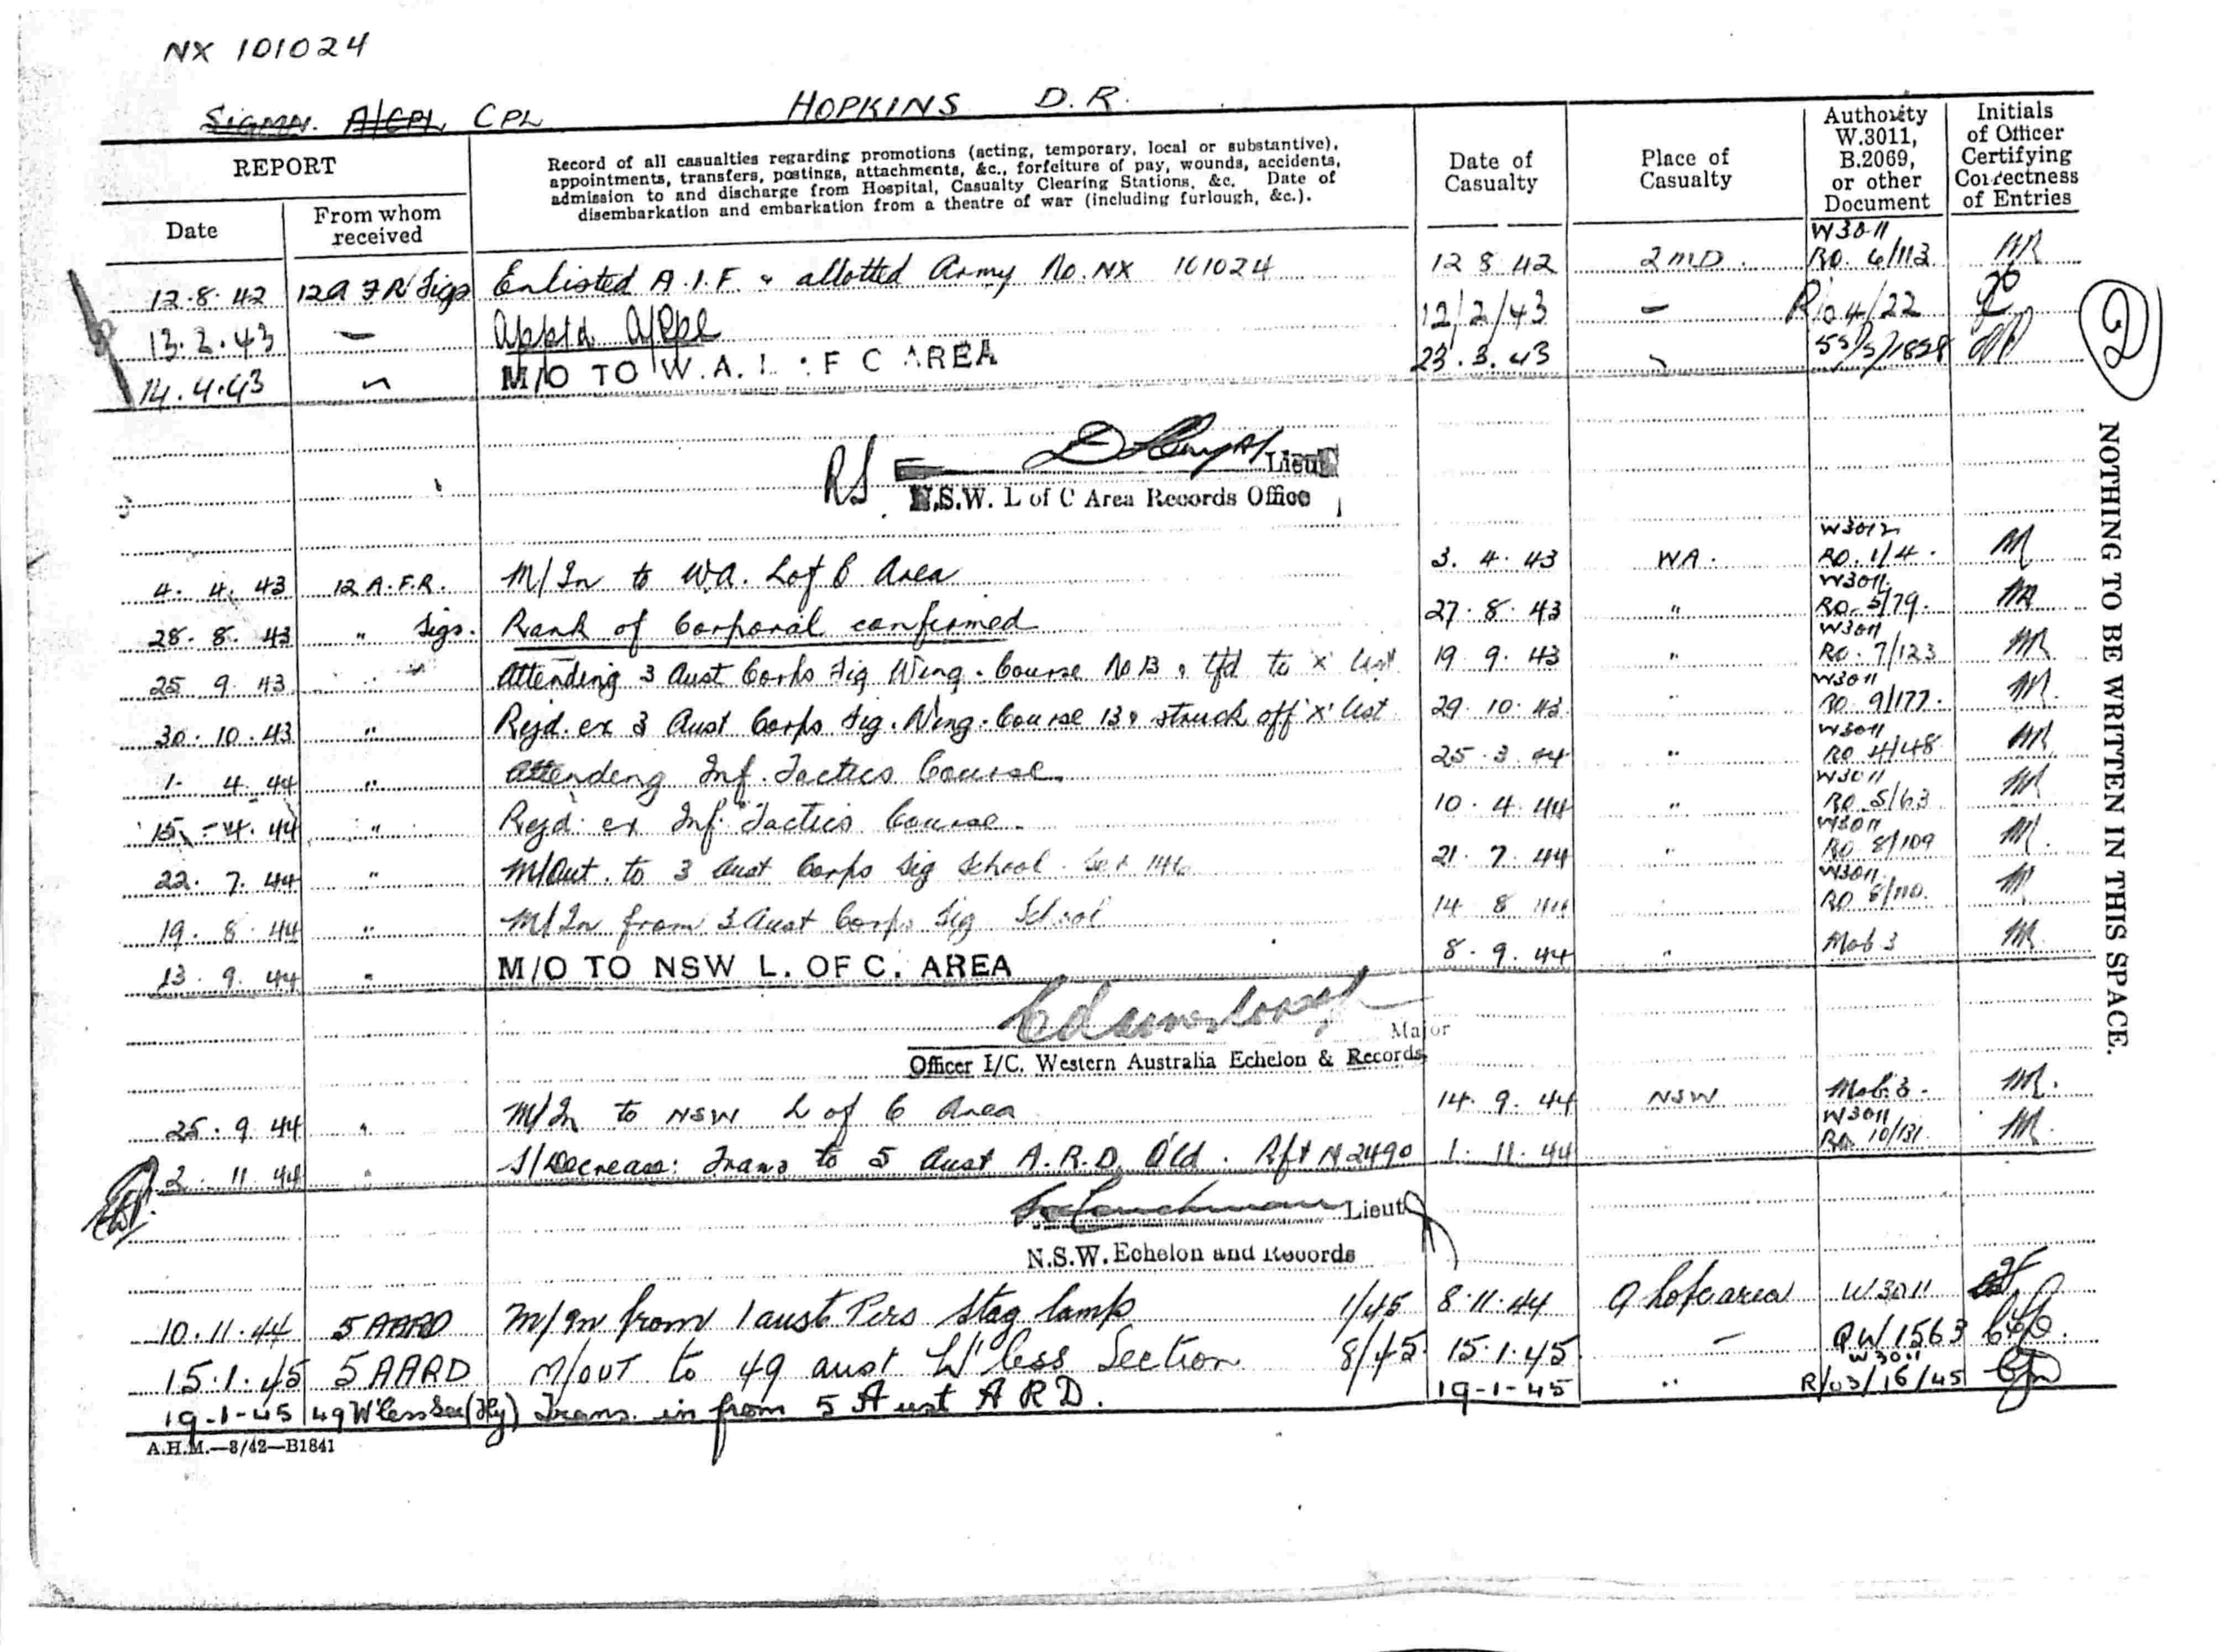 NX 101024
SIGMN. A/CPL CPL HOPKINS D.R.
REPORT
Date
From whom received
Record of all casualties regarding promotions (acting, temporary, local or substantive),
appointments, transfers, postings, attachments, &c., forfeiture of pay, wounds, accidents,
admission to and discharge from Hospital, Casualty Clearing Stations, &c. Date of
disembarkation and embarkation from a theatre of war (including furlough, &c.).
Date of Casualty
Place of Casualty
Authority W.3011, B.2069, or other Document
Initials of Officer Certifying Correctness of Entries
W3011
12.8.42 12A F R Sigs Enlisted A.I.F. & allotted Army No. NX 101024 12 8 42 2MD. RO. 6/113
13.2.43 — Apptd A/Cpl 12/2/43 — R/o 4/22
14.4.43 M/O TO W.A. L OF C AREA 23.3.43 55/5/1828
RS Lieut
N.S.W. L of C Area Records Office
W3012
4. 4. 43 12 A.F.R. M/In to W.A. L of C Area 3. 4. 43 WA. RO. 1/4.
W3011
28. 8. 43 " Sigs. Rank of Corporal confirmed 27. 8. 43 " RO. 5/79.
W3011
25 9. 43 " Attending 3 Aust Corps Sig Wing. Course No 13 & tfd to 'X' list 19 9. 43 " RO. 7/123
W3011
30. 10. 43 " Rejd. ex 3 Aust Corps Sig. Wing. Course 13 & struck off 'X' list 29. 10. 43 " RO 9/177.
W3011
1. 4. 44 " Attending Inf. Tactics Course. 25. 3. 44 " RO 4/48
W3011
15. 4. 44 " Rejd. ex Inf. Tactics Course. 10. 4. 44 " RO 5/63
W3011
22. 7. 44 " M/Out. to 3 Aust Corps Sig School 21. 7. 44 " RO 8/109
W3011
19. 8. 44 " M/In from 3 Aust Corps Sig School 14 8 44 RO 8/110.
13. 9. 44 " M/O TO NSW L. OF C. AREA 8. 9. 44 " Mob 3
Major
Officer I/C. Western Australia Echelon & Records
25. 9 44 " M/In to NSW L of C Area 14. 9. 44 NSW Mob. 3.
W3011
2. 11. 44 " S/Decrease: Trans to 5 Aust A.R.D. Qld. Rft N2490 1. 11. 44 RO 10/131.
Lieut
N.S.W. Echelon and Records
10.11.44 5AARD M/In from 1 aust Pers Stag Camp 1/45 8.11.44 Q L of C area W3011
15.1.45 5AARD M/OUT to 49 aust W'less Section 8/45 15.1.45 — QW1563
W3011
19-1-45 49 W'less Sec (Hy) Trans. in from 5 Aust A R D. 19-1-45 " R/03/16/45
A.H.M.—8/42—B1841
2
NOTHING TO BE WRITTEN IN THIS SPACE.